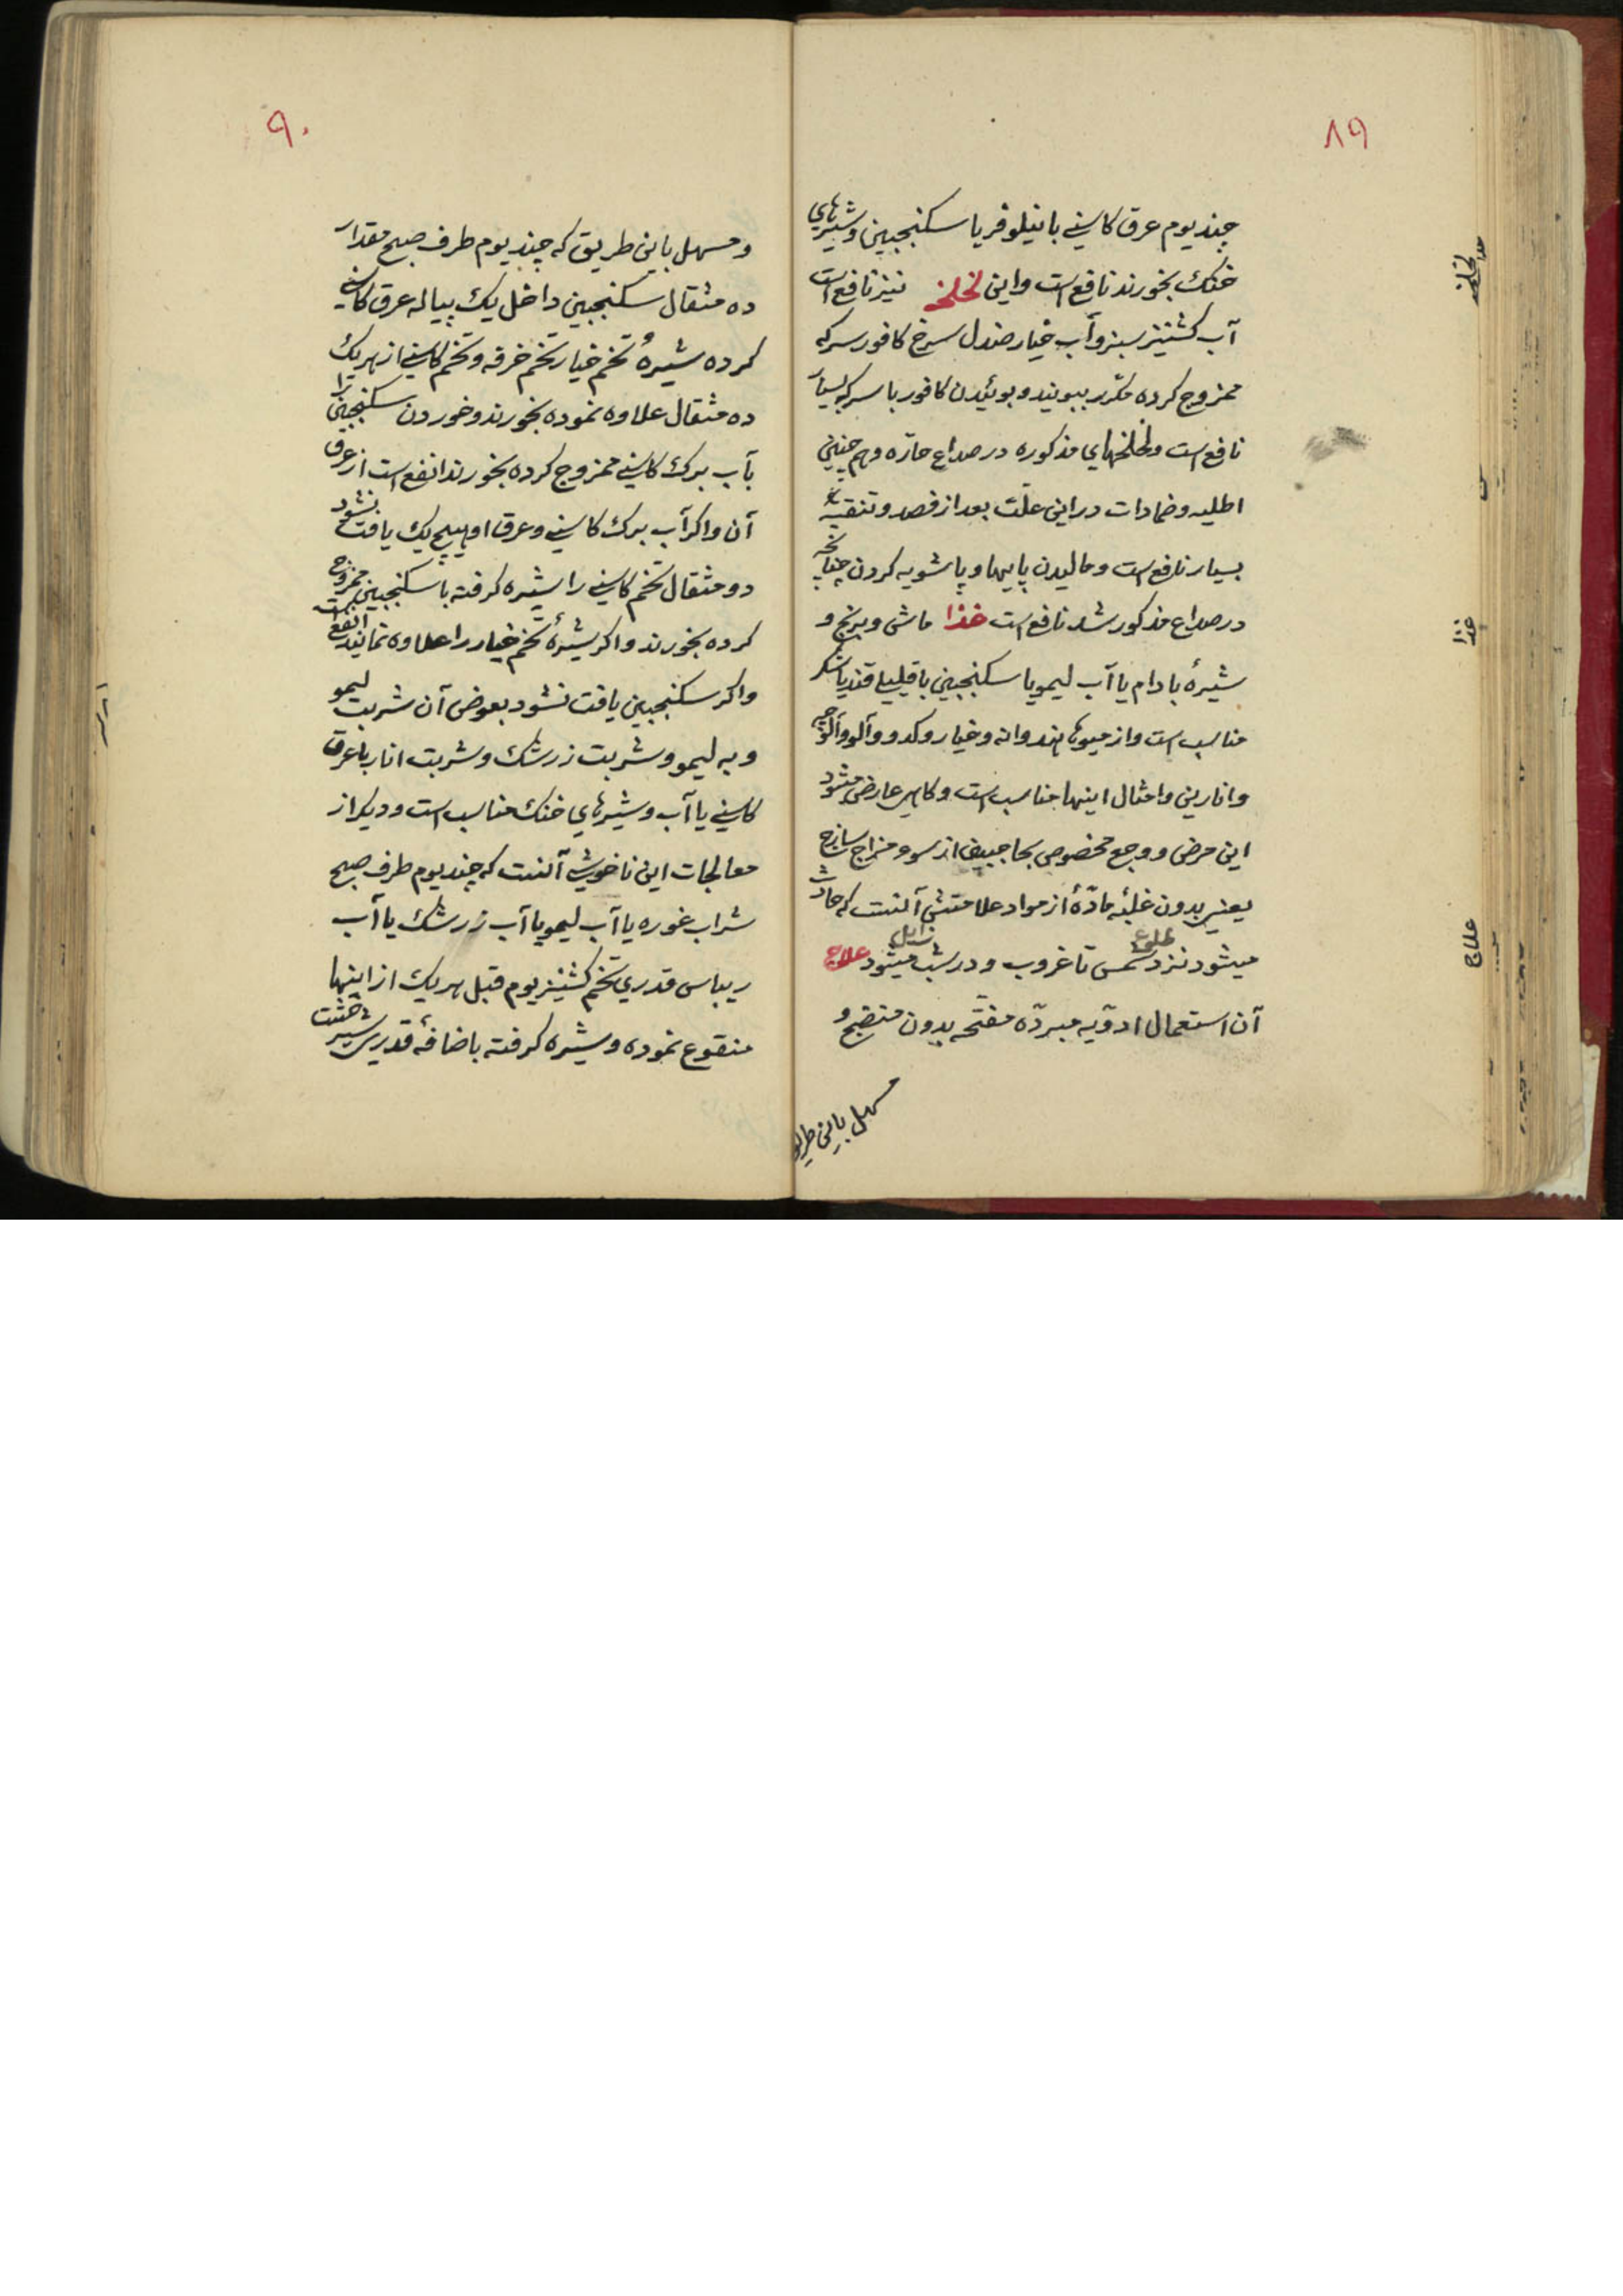 ۸۹
چند یوم عرق کاسنی با نیلوفر یا سکنجبین و شیرهای
خنک بخورند نافع است و این لخلخه نیز نافع است
آب کشنیز سبز و آب خیار صندل سرخ کافور سرکه
ممزوج کرده مکرر ببویند و بوئیدن کافور با سرکه بسیار
نافع است و لخلخهای مذکوره در صداع حارّه و هم چنین
اطلیه و ضمادات در این علّت بعد از فصد و تنقیه
بسیار نافع است و مالیدن پایها و پاشویه کردن چنانچه
در صداع مذکور شد نافع است غذا ماش و برنج و
شیرهٔ بادام یا آب لیمو یا سکنجبین با قلیلی قند یا شکر
مناسب است و از میوها هندوانه و خیار و کدو و آلو و آلوچه
و انارین و امثال اینها مناسب است و کاهی عارض میشود
این مرض و وجع مخصوص بحاجبین از سوء مزاج ساذج
یعنی بدون غلبهٔ مادّهٔ از مواد علامتش آنست که حادث
میشود نزد طلوع شمس تا غروب و در شب زایل میشود علاج
آن استعمال ادویه مبردّه مفتّحه بدون منضج و
مسهل باین طریق
لخلخه
غذا
علاج
۹۰
و مسهل باین طریق که چند یوم طرف صبح مقدار
ده مثقال سکنجبین داخل یک پیاله عرق کاسنی
کرده شیرهٔ تخم خیار تخم خرفه و تخم کاسنی از هر یک
ده مثقال علاوه نموده بخورند و خوردن سکنجبین را
بآب برک کاسنی ممزوج کرده بخورند انفع است از عرق
آن و اکر آب برک کاسنی و عرق او هیچ یک یافت نشود
دو مثقال تخم کاسنی را شیره کرفته با سکنجبین ممزوج
کرده بخورند و اکر شیرهٔ تخم خیار را علاوه نمایند انفع است
و اکر سکنجبین یافت نشود بعوض آن شربت لیمو
و به لیمو و شربت زرشک و شربت انار با عرق
کاسنی یا آب و شیرهای خنک مناسب است و دیکر از
معالجات این ناخوشی آنست که چند یوم طرف صبح
شراب غوره یا آب لیمو یا آب زرشک یا آب
ریباس قدری تخم کشنیز یوم قبل هر یک از اینها
منقوع نموده و شیره کرفته باضافهٔ قدری شیر خشت